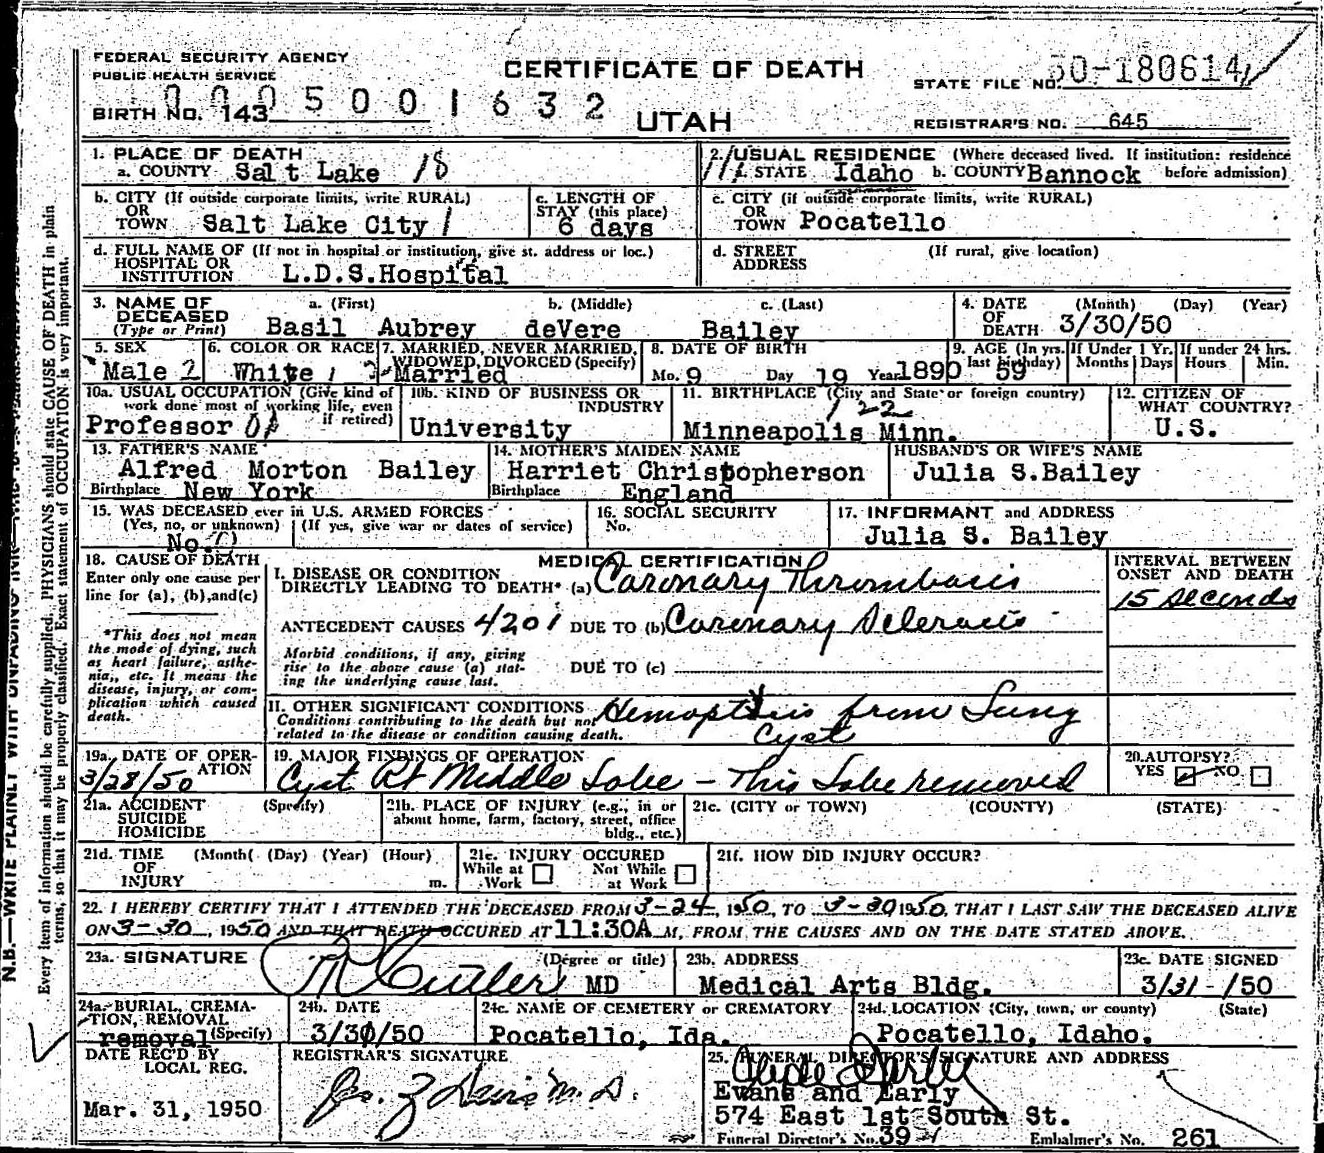 FEDERAL SECURITY AGENCY
PUBLIC HEALTH SERVICE
CERTIFICATE OF DEATH
STATE FILE NO. 50-180614
BIRTH NO. 143
0005001632
UTAH
REGISTRAR'S NO. 645
1. PLACE OF DEATH
a. COUNTY Salt Lake 18
2. USUAL RESIDENCE (Where deceased lived. If institution: residence before admission)
a. STATE Idaho b. COUNTY Bannock
b. CITY (If outside corporate limits, write RURAL)
OR
TOWN Salt Lake City 1
c. LENGTH OF
STAY (this place)
6 days
c. CITY (if outside corporate limits, write RURAL)
OR
TOWN Pocatello
d. FULL NAME OF (If not in hospital or institution, give st. address or loc.)
HOSPITAL OR
INSTITUTION L.D.S.Hospital
d. STREET
ADDRESS
(If rural, give location)
3. NAME OF
DECEASED
(Type or Print)
a. (First) b. (Middle) c. (Last)
Basil Aubrey deVere Bailey
4. DATE
OF
DEATH
(Month) (Day) (Year)
3/30/50
5. SEX
Male 2
6. COLOR OR RACE
White 1
7. MARRIED, NEVER MARRIED,
WIDOWED, DIVORCED (Specify)
2 Married
8. DATE OF BIRTH
Mo. 9 Day 19 Year 1890
9. AGE (In yrs.
last birthday)
59
If Under 1 Yr.
Months Days
If under 24 hrs.
Hours Min.
10a. USUAL OCCUPATION (Give kind of
work done most of working life, even
if retired)
Professor
10b. KIND OF BUSINESS OR
INDUSTRY
University
11. BIRTHPLACE (City and State or foreign country)
122
Minneapolis Minn.
12. CITIZEN OF
WHAT COUNTRY?
U.S.
13. FATHER'S NAME
Alfred Morton Bailey
Birthplace New York
14. MOTHER'S MAIDEN NAME
Harriet Christopherson
Birthplace England
HUSBAND'S OR WIFE'S NAME
Julia S.Bailey
15. WAS DECEASED ever in U.S. ARMED FORCES
(Yes, no, or unknown) (If yes, give war or dates of service)
No.
16. SOCIAL SECURITY
No.
17. INFORMANT and ADDRESS
Julia S. Bailey
18. CAUSE OF DEATH
Enter only one cause per
line for (a), (b), and (c)
*This does not mean
the mode of dying, such
as heart failure, asthe-
nia, etc. It means the
disease, injury, or com-
plication which caused
death.
MEDICAL CERTIFICATION
I. DISEASE OR CONDITION
DIRECTLY LEADING TO DEATH* (a) Coronary Thrombosis
ANTECEDENT CAUSES 4201 DUE TO (b) Coronary Sclerosis
Morbid conditions, if any, giving
rise to the above cause (a) stat-
ing the underlying cause last.
DUE TO (c)
INTERVAL BETWEEN
ONSET AND DEATH
15 seconds
II. OTHER SIGNIFICANT CONDITIONS
Conditions contributing to the death but not
related to the disease or condition causing death.
Hemoptysis from Lung
Cyst
19a. DATE OF OPER-
ATION
3/28/50
19. MAJOR FINDINGS OF OPERATION
Cyst Rt Middle Lobe - This Lobe removed
20. AUTOPSY?
YES NO
21a. ACCIDENT (Specify)
SUICIDE
HOMICIDE
21b. PLACE OF INJURY (e.g., in or
about home, farm, factory, street, office
bldg., etc.)
21c. (CITY or TOWN) (COUNTY) (STATE)
21d. TIME (Month) (Day) (Year) (Hour)
OF
INJURY m.
21e. INJURY OCCURED
While at Work Not While at Work
21f. HOW DID INJURY OCCUR?
22. I HEREBY CERTIFY THAT I ATTENDED THE DECEASED FROM 3-24, 1950, TO 3-30 1950, THAT I LAST SAW THE DECEASED ALIVE
ON 3-30, 1950 AND THAT DEATH OCCURED AT 11:30A M., FROM THE CAUSES AND ON THE DATE STATED ABOVE.
23a. SIGNATURE (Degree or title)
Cutler MD
23b. ADDRESS
Medical Arts Bldg.
23c. DATE SIGNED
3/31-/50
24a. BURIAL, CREMA-
TION, REMOVAL
(Specify)
removal
24b. DATE
3/30/50
24c. NAME OF CEMETERY or CREMATORY
Pocatello, Ida.
24d. LOCATION (City, town, or county) (State)
Pocatello, Idaho.
DATE REC'D BY
LOCAL REG.
Mar. 31, 1950
REGISTRAR'S SIGNATURE
25. FUNERAL DIRECTOR'S SIGNATURE AND ADDRESS
Evans and Early
574 East 1st South St.
Funeral Director's No. 39 Embalmer's No. 261
Every item of information should be carefully supplied. PHYSICIANS should state CAUSE OF DEATH in plain
terms, so that it may be properly classified. Exact statement of OCCUPATION is very important.
N.B.—WRITE PLAINLY WITH UNFADING INK